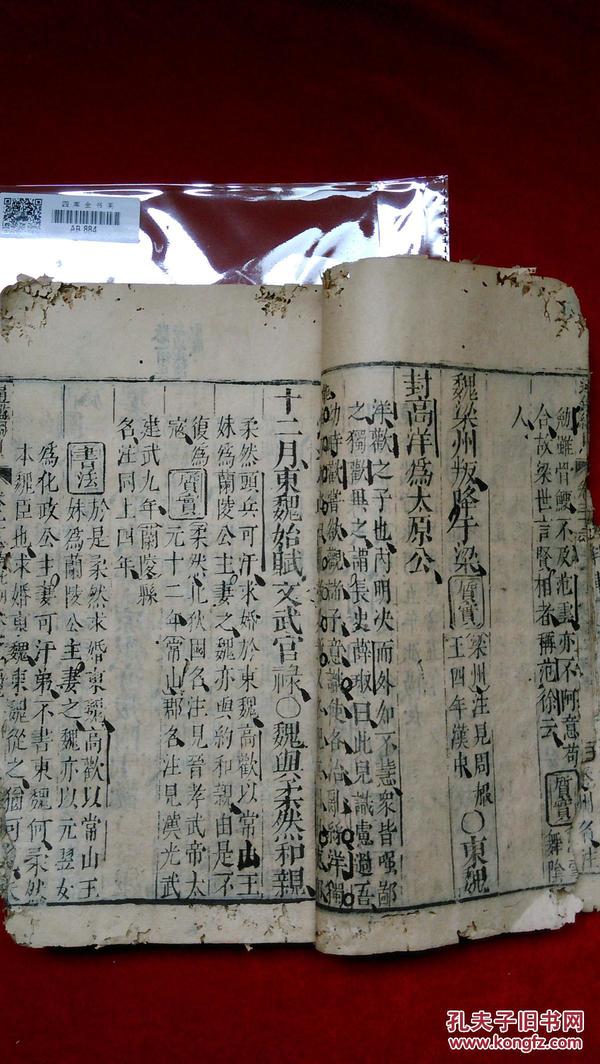 四库全书系
AB 884
勉雖骨鯁不及范雲亦不阿意苟
合故梁世言賢相者稱范徐云
質實
舞陰
人
魏梁州叛降于梁質實梁州注見周赧
王四年漢中
○東魏
封高洋爲太原公
洋歡之子也內明決而外如不慧衆皆嗤鄙
之獨歡異之謂長史薛琡曰此兒識慮過吾
幼時歡嘗欲觀諸子意識使各治亂絲洋獨
十二月東魏始賦文武官祿○魏與柔然和親
柔然頭兵可汗求婚於東魏高歡以常山王
妹爲蘭陵公主妻之魏亦與約和親由是不
復爲寇質實柔然北狄國名注見晉孝武帝太
元十二年常山郡名注見漢光武
建武九年蘭陵縣
名注同上四年
書法於是柔然求婚東魏高歡以常山王
妹爲蘭陵公主妻之魏亦以元翌女
爲化政公主妻可汗弟不書東魏何柔然
本魏臣也求婚東魏東魏從之猶可
孔夫子旧书网
www.kongfz.com